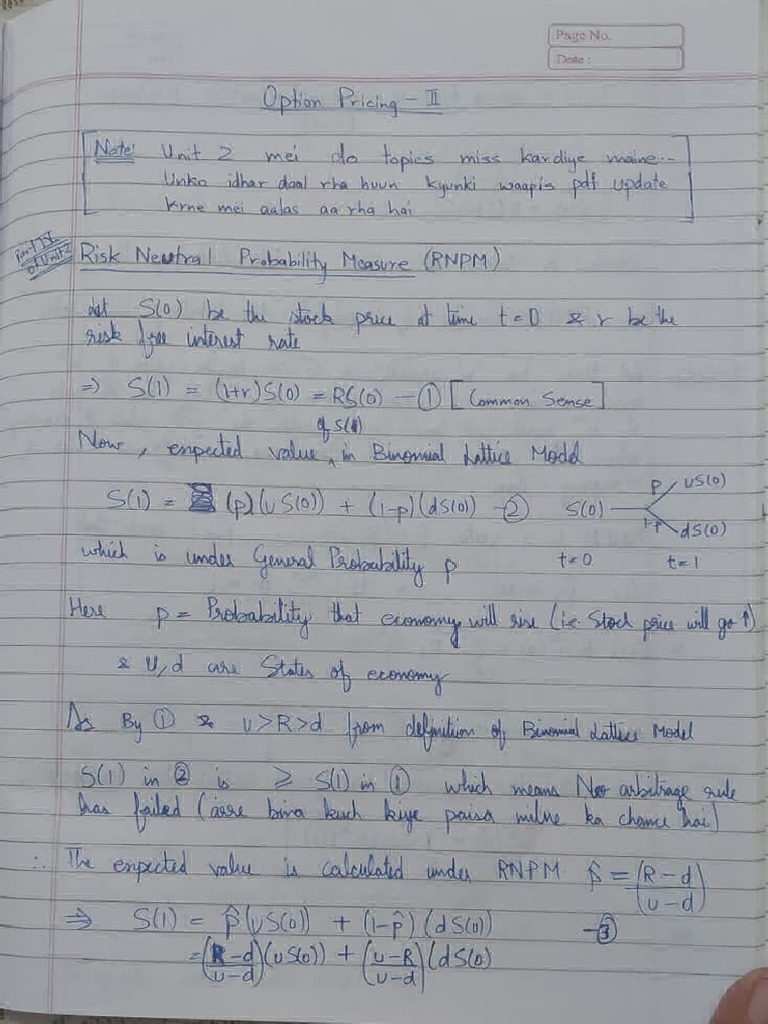 Page No.
Date :
Option Pricing - II
Note: Unit 2 mei do topics miss kar diye maine...
Unko idhar daal rha huun kyunki waapis pdf update
krne mei aalas aa rha hai
Part II
of Unit 2
Risk Neutral Probability Measure (RNPM)
Let S(0) be the stock price at time t=0 & r be the
risk free interest rate
⇒ S(1) = (1+r)S(0) = RS(0) — ① [Common Sense]
of S(1)
Now, expected value in Binomial Lattice Model
S(1) = (p)(uS(0)) + (1-p)(dS(0)) — ② S(0)
p uS(0)
1-p dS(0)
which is under General Probability p t=0 t=1
Here p = Probability that economy will rise (i.e. Stock price will go ↑)
& U, d are States of economy
As By ① & u>R>d from definition of Binomial Lattice Model
S(1) in ② is ≥ S(1) in ① which means No arbitrage rule
has failed (aise bina kuch kiye paisa milne ka chance hai)
∴ The expected value is calculated under RNPM p̂ = (R-d)/(u-d)
⇒ S(1) = p̂(uS(0)) + (1-p̂)(dS(0)) — ③
= (R-d)/(u-d) (uS(0)) + (u-R)/(u-d) (dS(0)